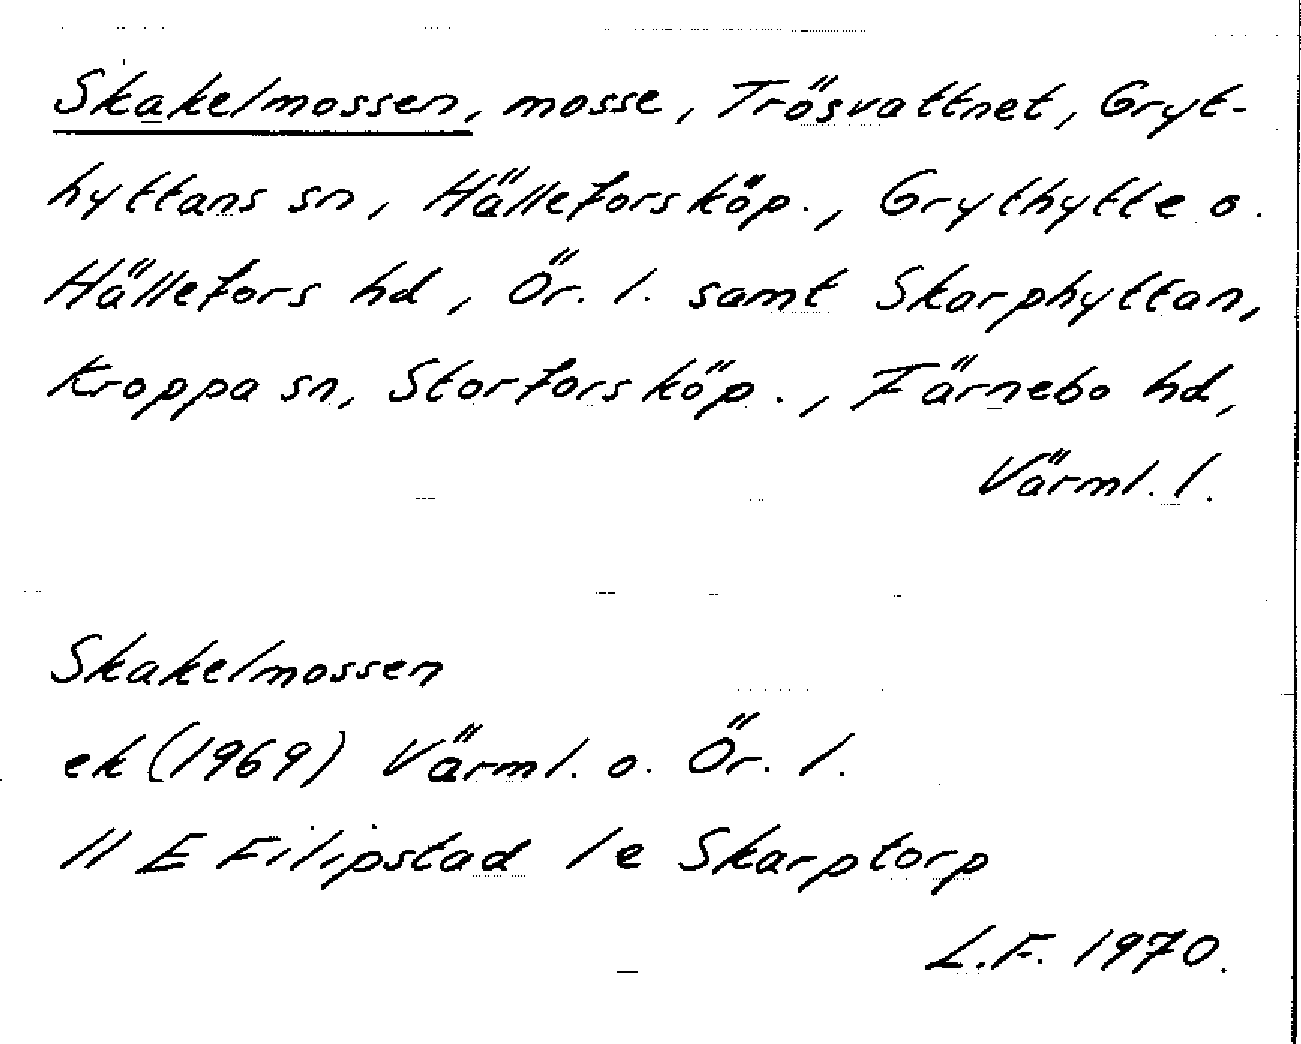 Skakelmossen, mosse, Trösvattnet, Gryt-
hyttans sn, Hällefors köp., Grythytte o.
Hällefors hd, Ör. l. samt Skarphyttan,
Kroppa sn, Storfors köp., Färnebo hd,
Värml. l.
Skakelmossen
ek (1969) Värml. o. Ör. l.
11 E Filipstad 1e Skarptorp
L.F. 1970.